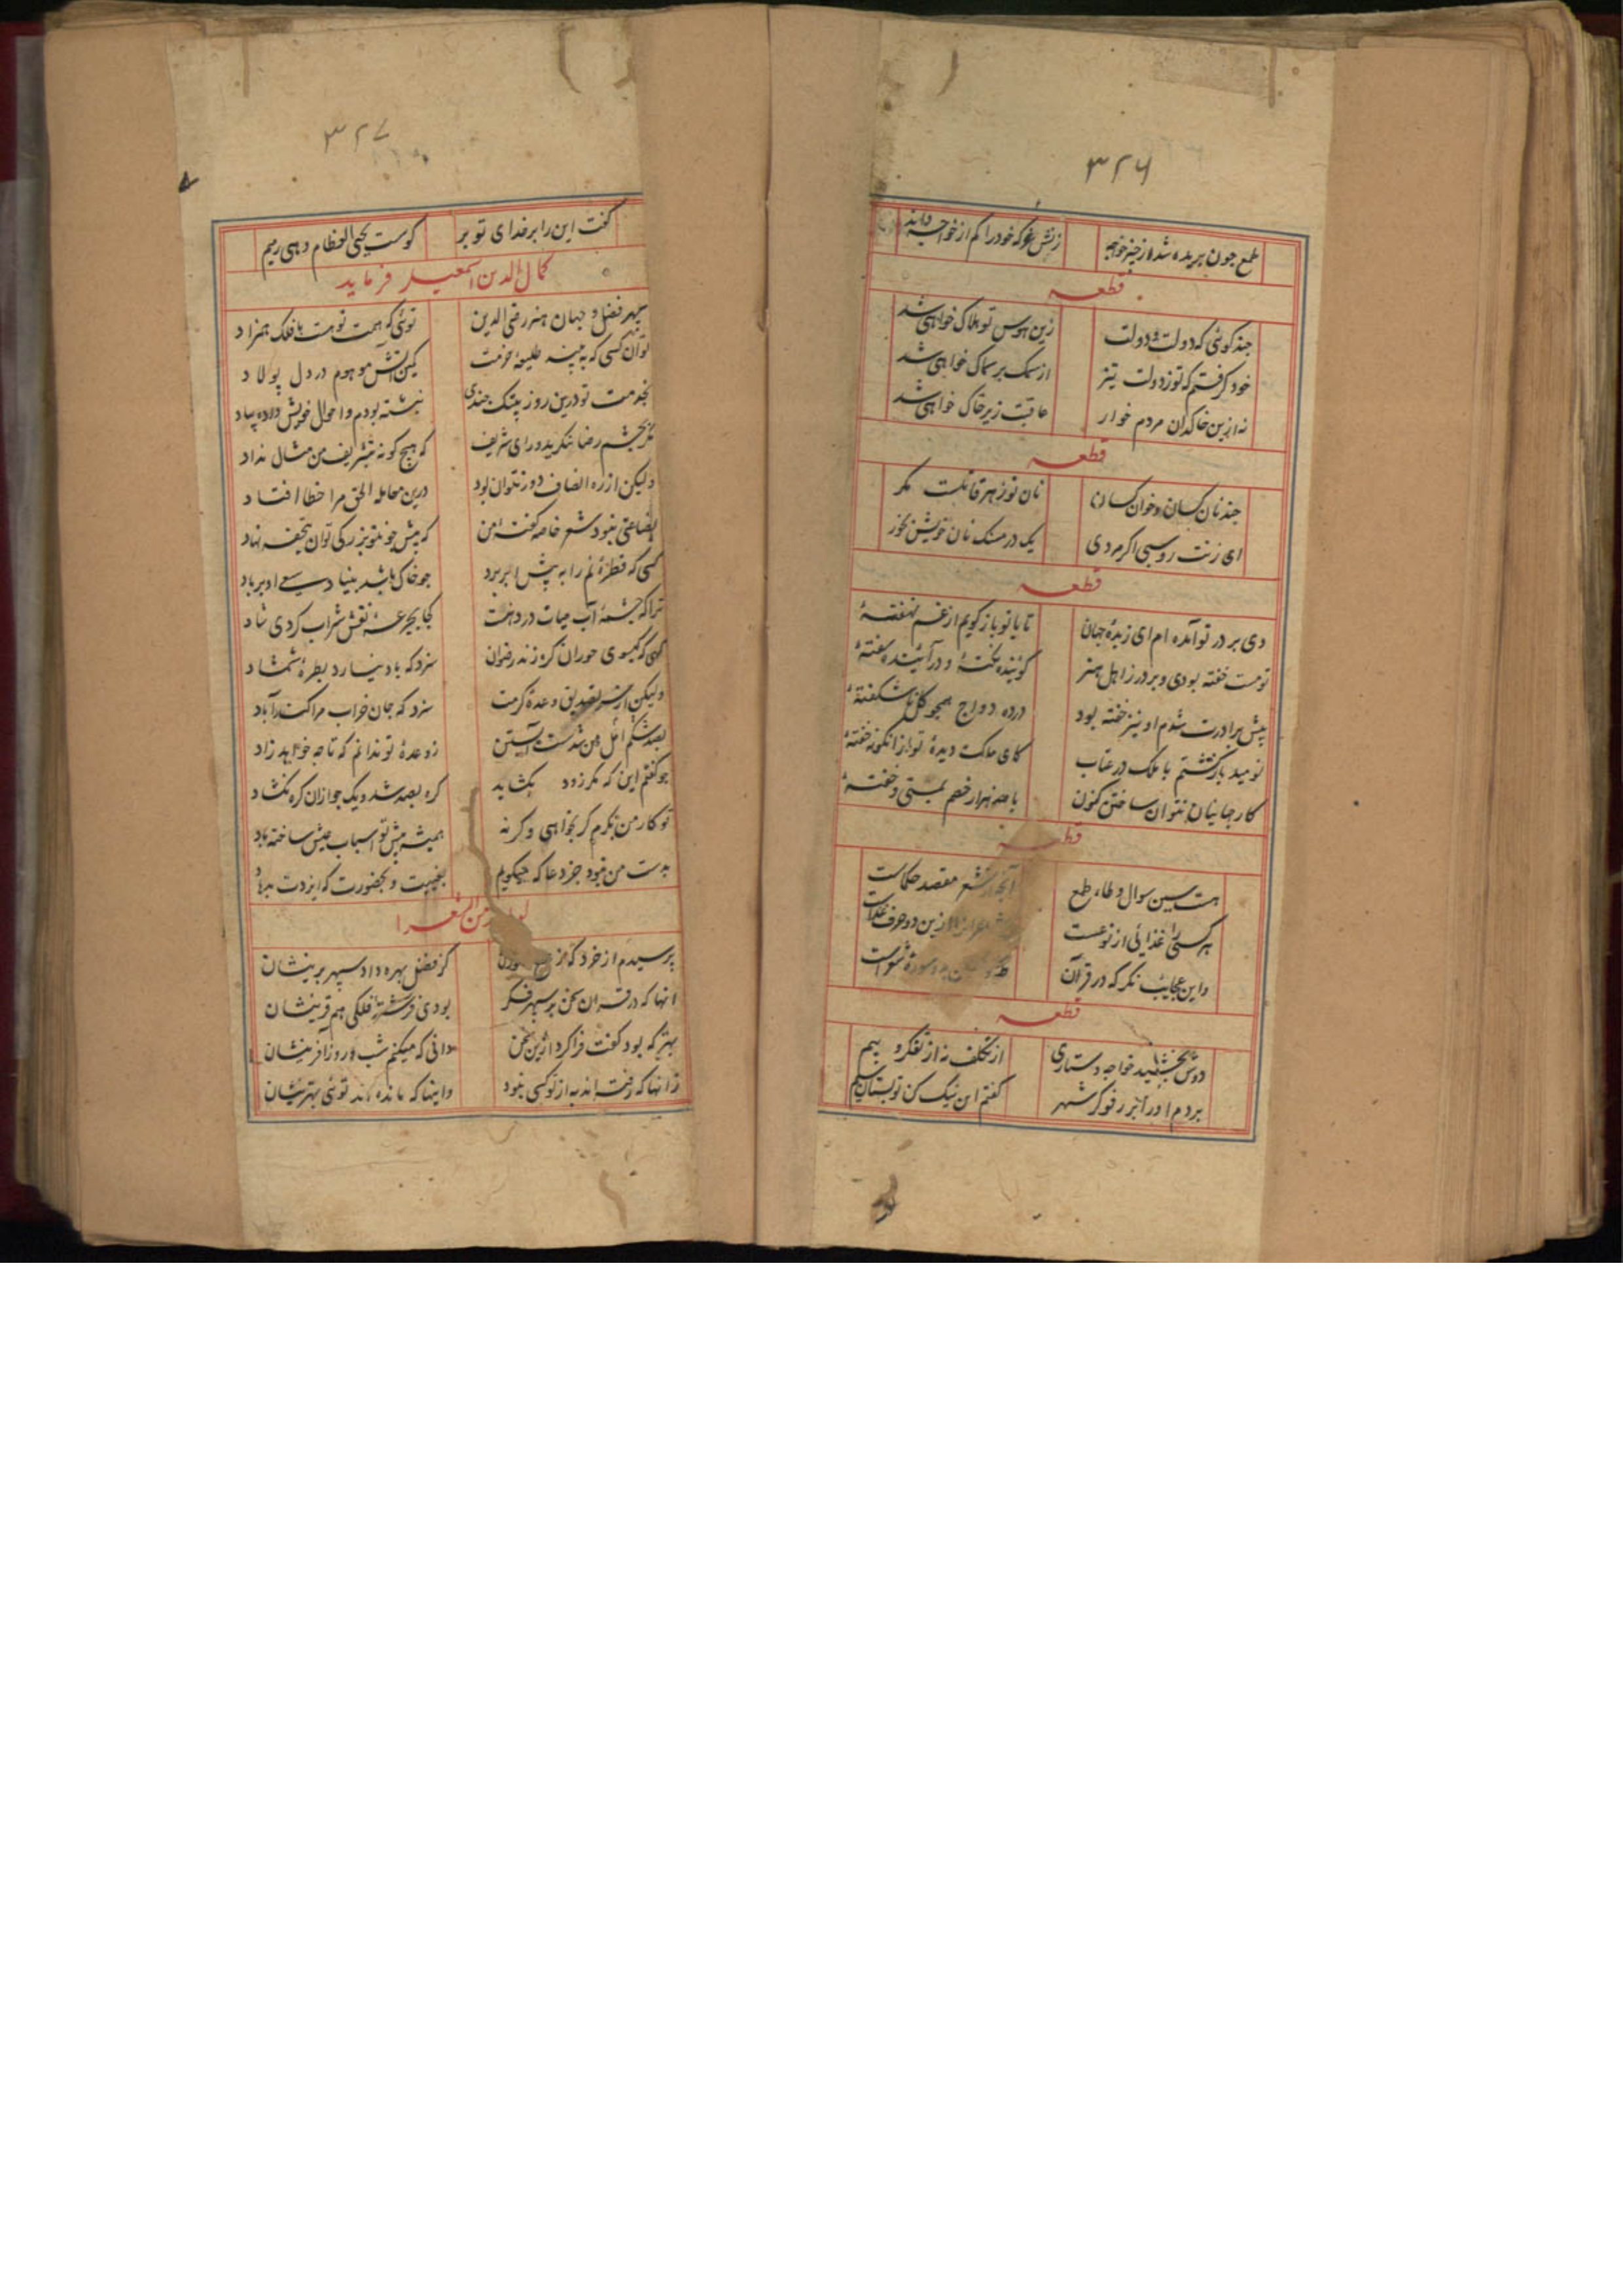 ۳۲۶
طمع چون بریده شد از چیز خواجه
زنش غر که خود را کم از خواجه داند
قطعه
چند کوئی که دولت و دولت
زین هوس تو هلاک خواهی شد
خود کرفتم که تو ز دولت تیز
از سمک بر سماک خواهی شد
نه ازین خاکدان مردم خوار
عاقبت زیر خاک خواهی شد
قطعه
چند نان کسان و خوان کسان
نان تو زهر قاتلست مکر
ای زنت روسبی اکر مردی
یک درمسنک نان خویش بخور
قطعه
دی بر در تو آمده ام ای زبدهٔ جهان
تا با تو باز کویم از غم نهفتهٔ
تو مست خفته بودی و بر در ز اهل هنر
کوینده نکتهٔ و در آئینده سفتهٔ
پیش برادرت شدم او نیز خفته بود
درده دواج همچو کل ناشکفتهٔ
نومید بازکشتم با ملک در عتاب
کای ملکت دیدهٔ تو از انکونه خفتهٔ
کار جهانیان نتوان ساختن کنون
با صد هزار خصم بمستی و خفتهٔ
قطعه
هست سین سوال و طاء طمع
آنجا شعر مقصد حکماست
هر کسی را غذائی از نوعیست
شعرا را ازین دو حرف
واین عجایب نکر که در قرآن
سورهٔ شعراست
قطعه
دوش بخشید خواجه دستاری
از تکلف نه از تفکر و بیم
بردم او را بر رفوکر شهر
کفتم این نیک کن تو بستان سیم
۳۲۷
کفت این را بر خدای تو بر
کوست یحیی العظام و هی رمیم
کمال الدین اسمعیل فرماید
سپهر فضل و جهان هنر رضی الدین
توئی که همت تو هست با فلک همزاد
تو آن کسی که به پنبه
کمین آتش موهوم در دل پولاد
بخدمت تو درین روز بیتک چندی
نبشته بودم و احوال خویش داده بیاد
بچشم رضا ننکرید رای شریف
که هیچ کونه بتشریف من مثال نداد
ولیکن از ره انصاف دور نتوان بود
درین معامله الحق مرا خطا افتاد
بضاعتی نبود شعر خاصه کفتهٔ من
که پیش چو تو بزرکی توان تحفه نهاد
کسی که قطرهٔ نم را به پیش ابر برد
چو خاک باشد بنیاد سعی او بر باد
ترا که چشمهٔ آب حیات در دهنست
کجا بجرعهٔ نقش شراب کردی شاد
کسی که کیسوی حوران کره زند رضوان
سزد که یاد نیارد بطرهٔ شمشاد
ولیکن از سر تصدیق وعدهٔ کرمت
سزد که جان خراب مرا کنند آباد
بصد شکم امل من شدست آبستن
ز وعدهٔ تو ندانم که تا چه خواهد زاد
چو کفتم این که مکر زود بکشاید
کره بصد شد و یک جو ازان کره نکشاد
تو کار من بکرم کر بخواهی و کر نه
همیشه پیش تو اسباب عیش ساخته باد
بدست من نبود جز دعا که میکویم
بغیبت و بحضورت که ایزدت بدهاد
من الشعرا
پرسیدم از خرد که
کز فضل بهره داد سپهر برینشان
انها که در قران سخن بر سپهر فکر
بودی فرشتهٔ فلکی هم قرینشان
بهتر که بود کفت فراکرد ازین سخن
دانی که میکنم شب و روز آفرینشان
زانها که رفته اند به از تو کسی نبود
واینها که مانده اند توئی بهترینشان